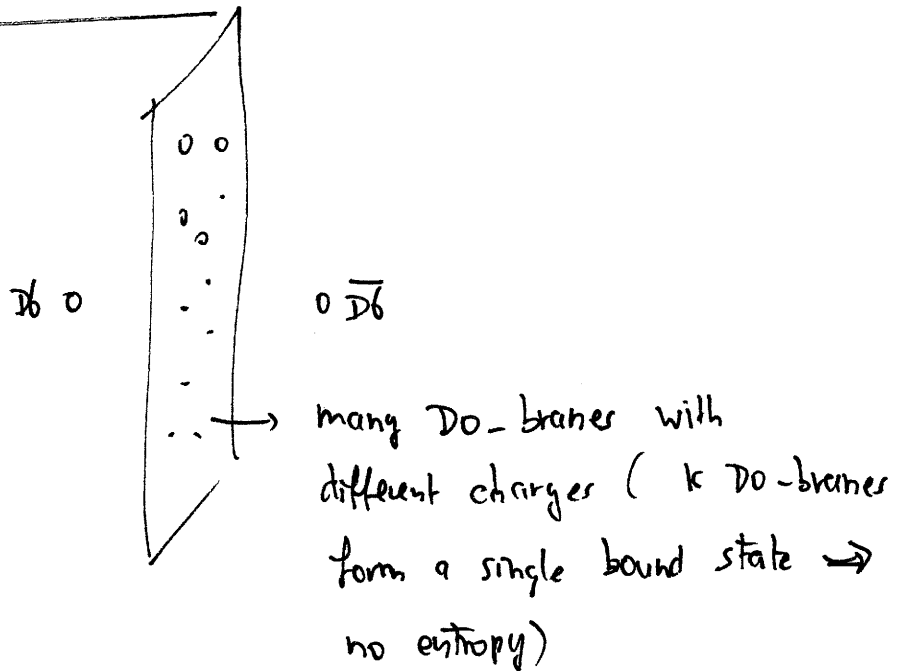 D6 0 0 D̅6̅
many D0-branes with
different charges ( k D0-branes
form a single bound state →
no entropy)